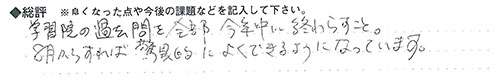 ◆総評 ※良くなった点や今後の課題などを記入して下さい。
学習院の過去問を全部、今年中に終わらすこと。
8月からすれば驚異的によくできるようになっています。